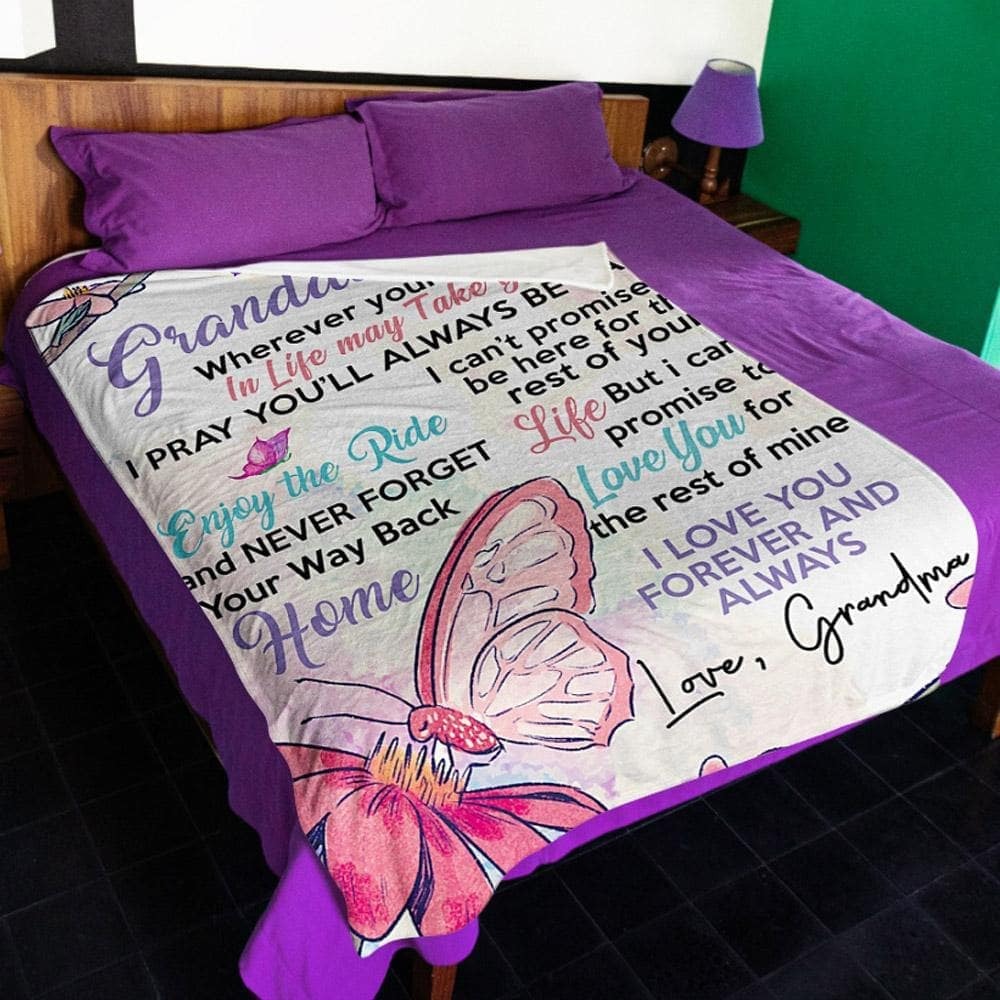 Wherever your
In Life may Take
I PRAY YOU'LL ALWAYS BE
Enjoy the Ride
and NEVER FORGET
Your Way Back
Home
I can't promise
be here for
rest of your
Life But i can
promise to
Love You for
the rest of mine
I LOVE YOU
FOREVER AND
ALWAYS
Love, Grandma